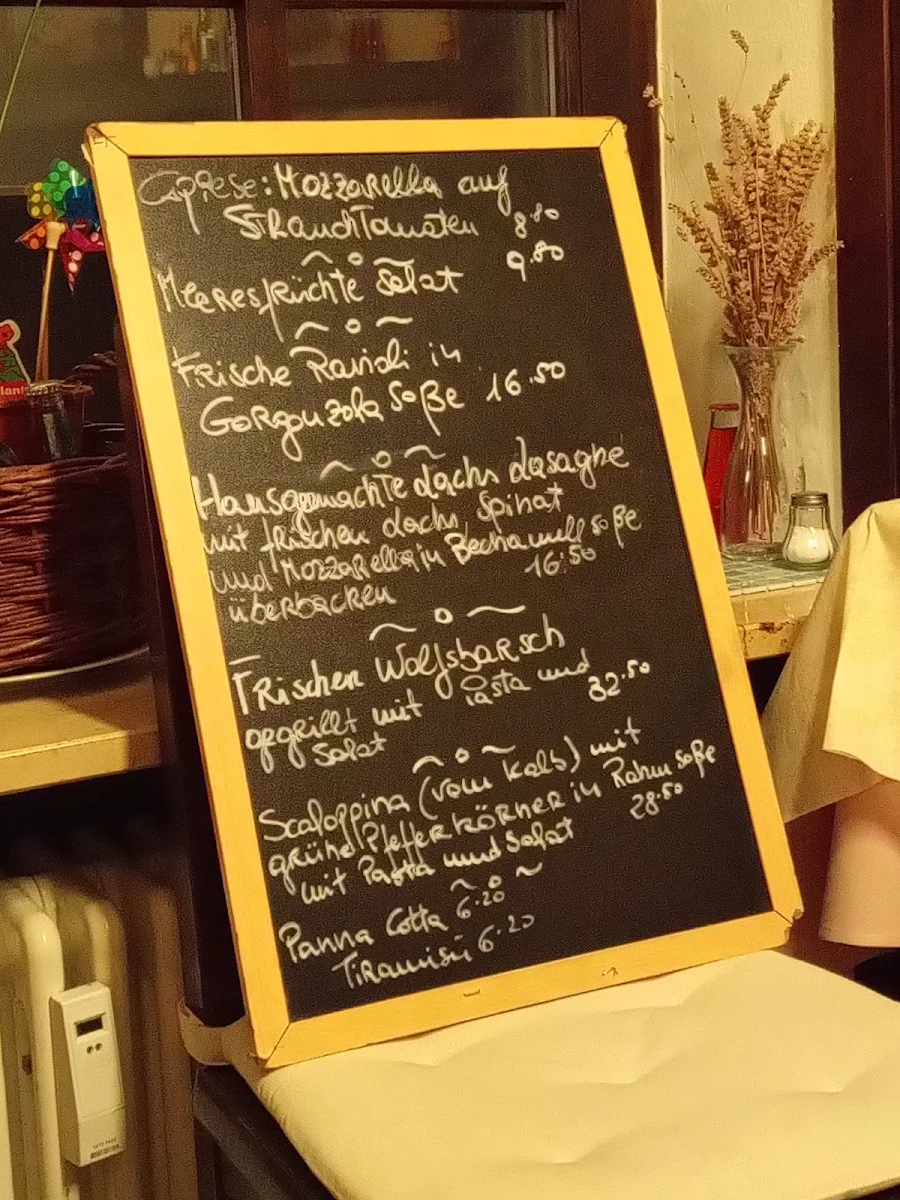 Caprese: Mozzarella auf
Strauchtomaten 8.80
Meeresfrüchte Salat 9.80
Frische Ravioli in
Gorgonzola Soße 16.50
Hausgemachte Lachs Lasagne
mit frischen Lachs, Spinat
und Mozzarella in Bechamell soße
überbacken 16.50
Frischen Wolfsbarsch
gegrillt mit Pasta und
Salat 32.50
Scaloppina (vom Kalb) mit
grüne Pfefferkörner in Rahm soße
mit Pasta und Salat 28.50
Panna Cotta 6.20
Tiramisù 6.20